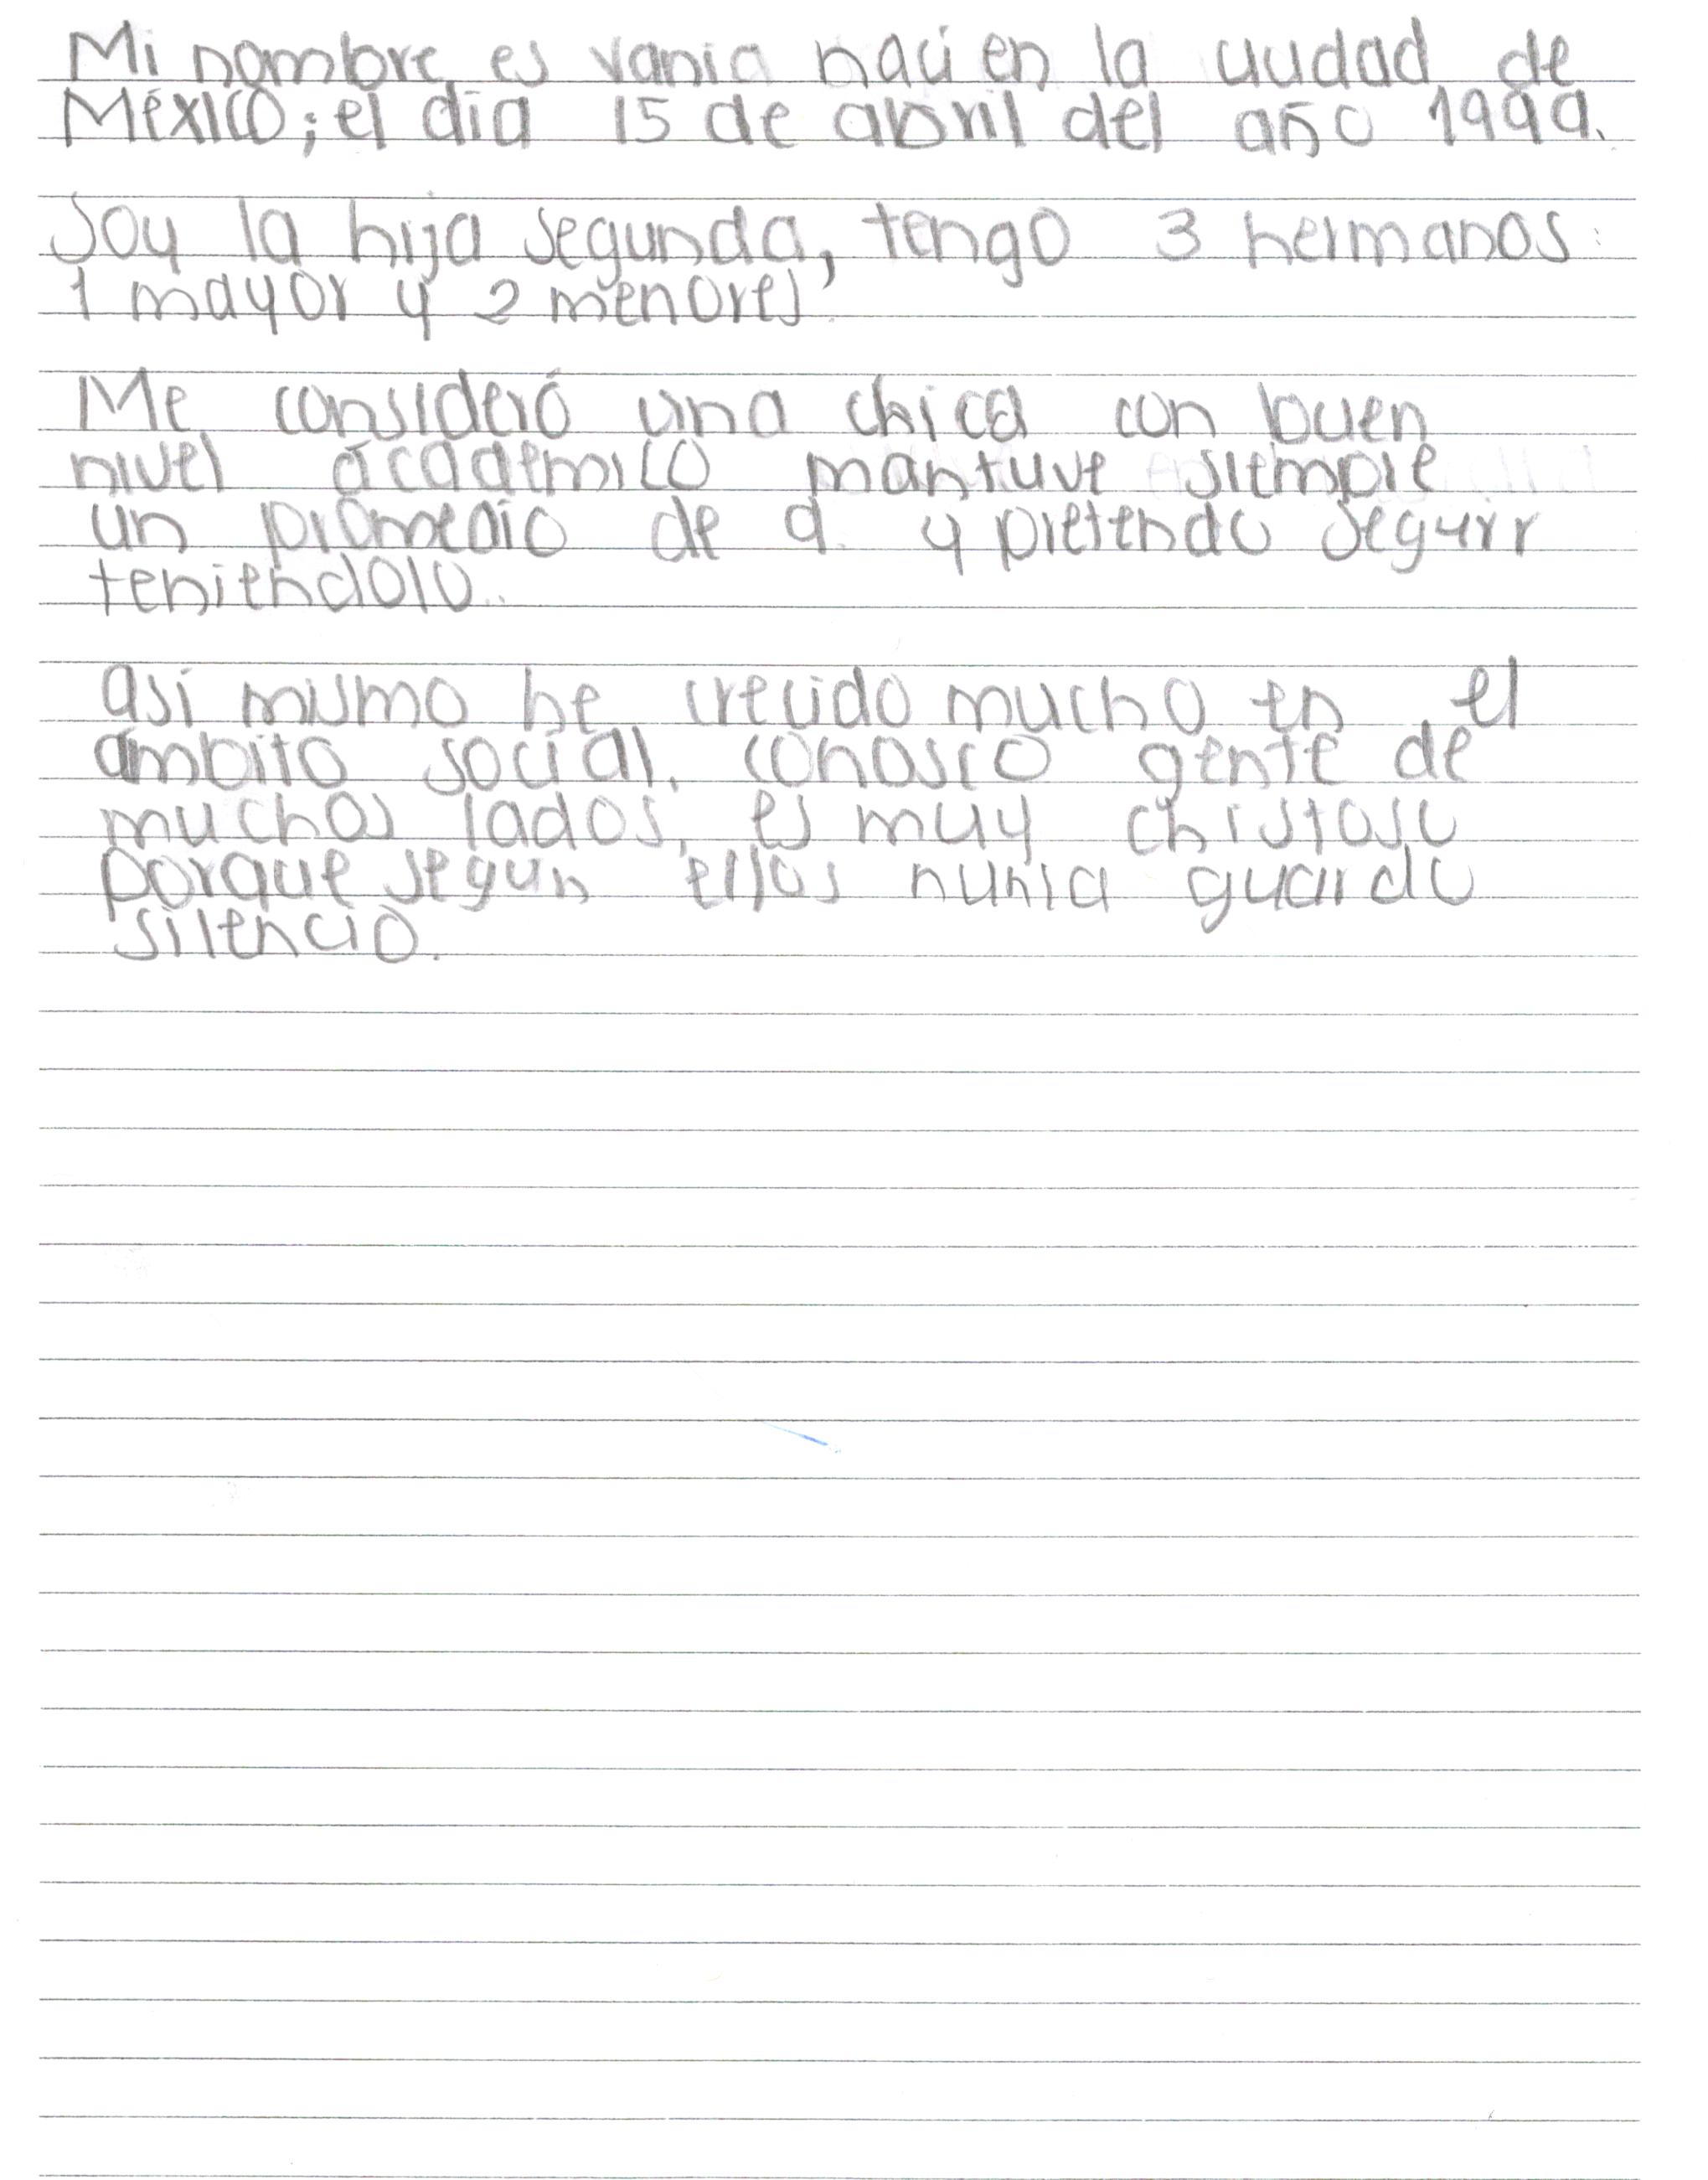 Mi nombre es vania naci en la ciudad de
México; el dia 15 de abril del año 1999.
Soy la hija segunda, tengo 3 hermanos:
1 mayor y 2 menores.
Me consideró una chica con buen
nivel academico mantuve siempre
un promedio de 9. y pretendo seguir
teniendolo.
asi mismo he crecido mucho en el
ámbito social. conosco gente de
muchos lados, es muy chistoso
porque segun ellos nunca guardo
silencio.